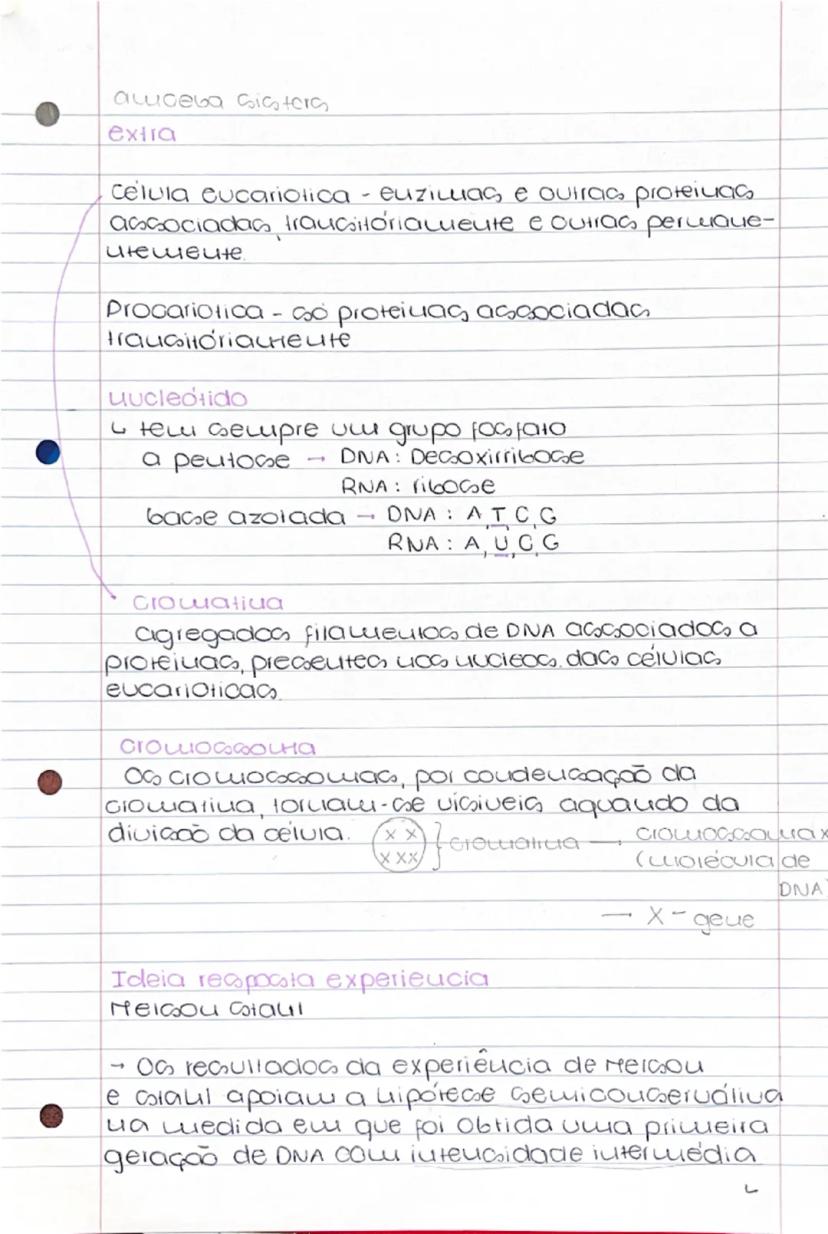 amoeba sisters
extra
célula eucariotica - enzimas e outras proteinas
associadas transitóriamente e outras permane-
ntemente.
Procariotica - só proteinas associadas
transitóriamente
nucleótido
↳ tem sempre um grupo fosfato
a pentose → DNA: Desoxirribose
RNA: ribose
base azotada → DNA: A, T, C, G
RNA: A, U, C, G
cromatina
agregados filamentos de DNA associados a
proteinas, presentes nos nucleos das células
eucarioticas.
cromossoma
Os cromossomas, por condensação da
cromatina, tornam-se visiveis aquando da
divisão da célula. x x x x x } cromatina → cromossoma x
(molécula de
DNA)
→ X - gene
Ideia resposta experiencia
Melson Stahl
→ Os resultados da experiência de Melson
e Stahl apoiam a hipótese semiconservativa
na medida em que foi obtida uma primeira
geração de DNA com intensidade intermédia